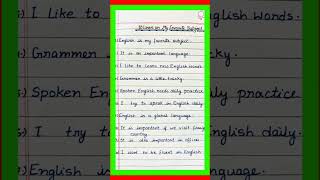 10 Lines on My Favorite Subject
1) English is my favorite subject.
2) It is an important language.
3) I like to learn new English words.
4) Grammer is a little tricky.
5) Spoken English needs daily practice
6) I try to speak in English daily.
7) English is a global language.
8) It is important if we visit
country.
9) It is also important in offices.
10) I want to be fluent in English.
I like to
Grammer
Spoken
I try to
English is
English words.
practice
English daily.
language.